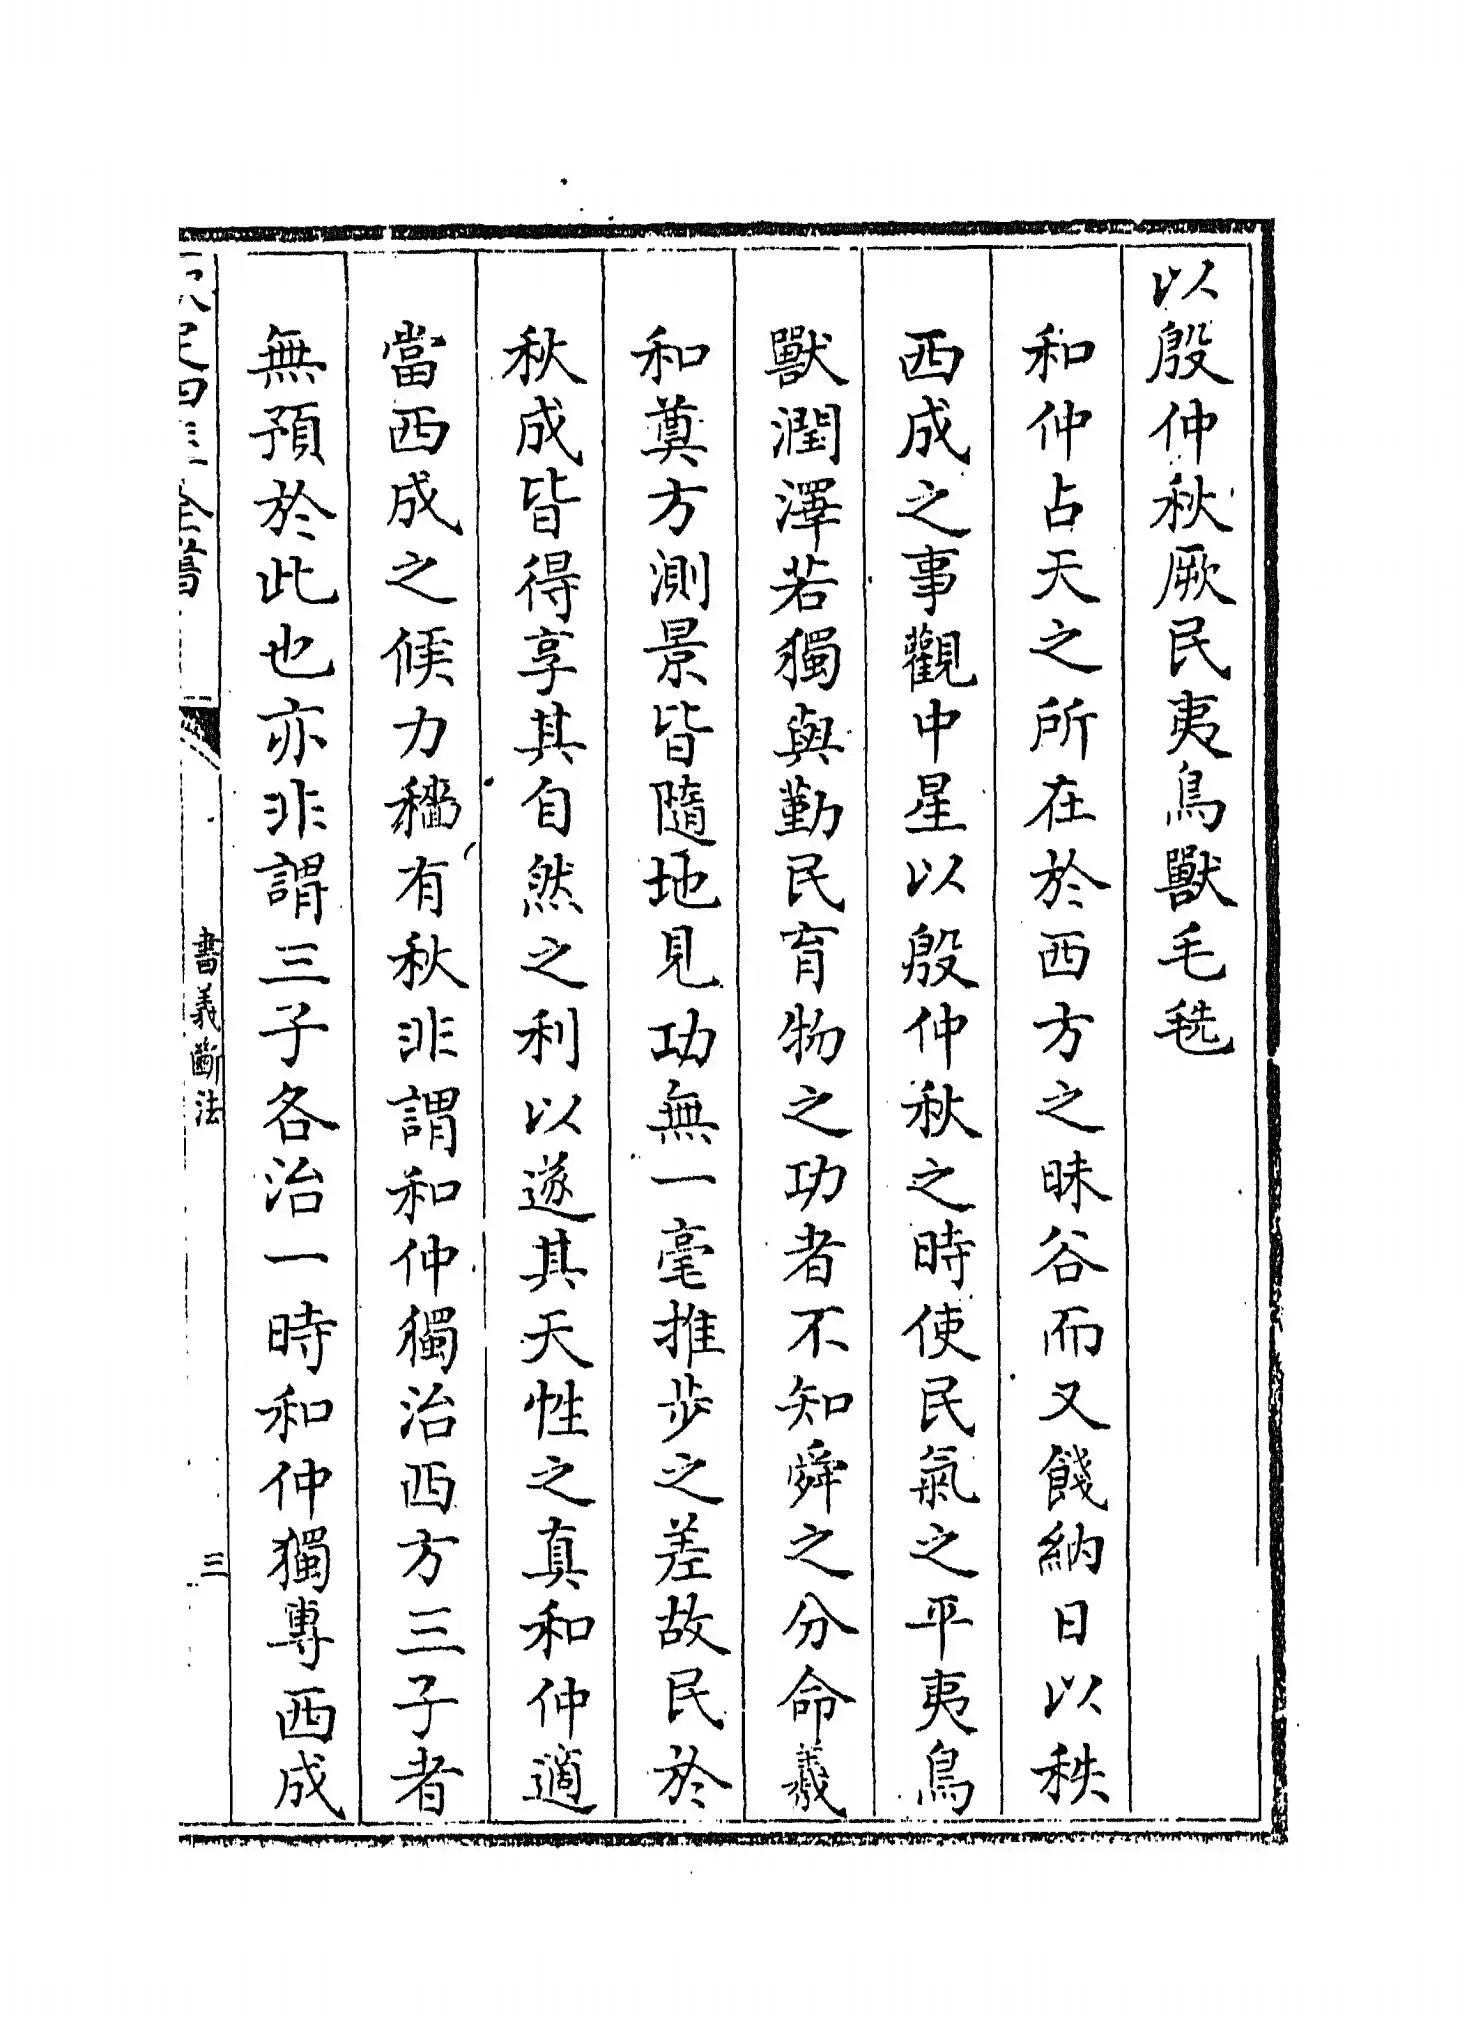 以殷仲秋厥民夷鳥獸毛毨
和仲占天之所在於西方之昧谷而又餞納日以秩
西成之事觀中星以殷仲秋之時使民氣之平夷鳥
獸潤澤若獨與勤民育物之功者不知舜之分命羲
和奠方測景皆隨地見功無一毫推步之差故民於
秋成皆得享其自然之利以遂其天性之真和仲適
當西成之候力穡有秋非謂和仲獨治西方三子者
無預於此也亦非謂三子各治一時和仲獨專西成
欽定四庫全書
書義斷法
三